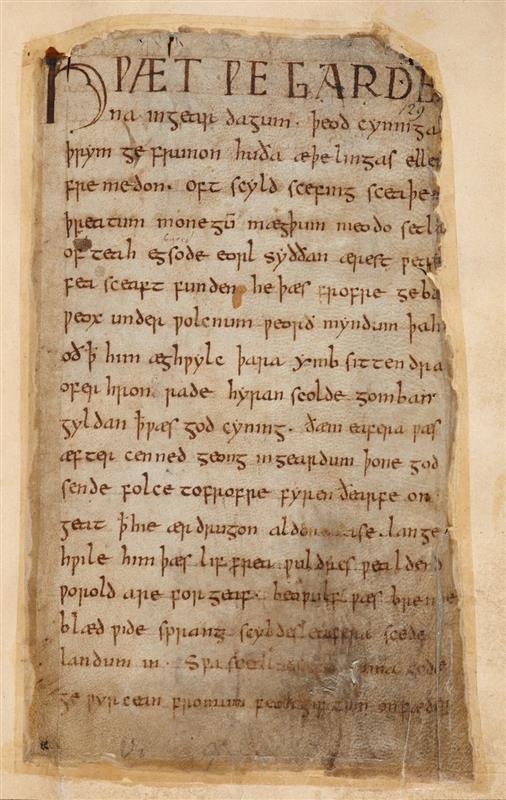 HǷÆT ǷE GARDE
129
na ingear dagum. þeod cyninga
þrym ge frunon huða æþelingas elle
fre medon. oft scyld scefing sceaþe
þreatum monegū mægþum meodo setla
of teah egsode eorl syððan ærest ƿear
fea sceaft funden he þæs frofre geba
ƿeox under ƿolcnum ƿeorð myndum þah
oð ꝥ him æghƿylc þara ymb sittendra
ofer hron rade hyran scolde gomban
gyldan ꝥ ƿæs god cyning. ðæm eafera ƿæs
æfter cenned geong ingeardum þone god
sende folce tofrofre fyren ðearfe on
geat ꝥ hie ær drugon aldor ase. lange
hƿile him þæs lif frea ƿuldres ƿealdend
ƿorold are for geaf. beoƿulf ƿæs breme
blæd ƿide sprang scyldes eafera scede
landum in. Sƿa sceal uma gode
ge ƿyrcean fromum feoh giftum on fæder